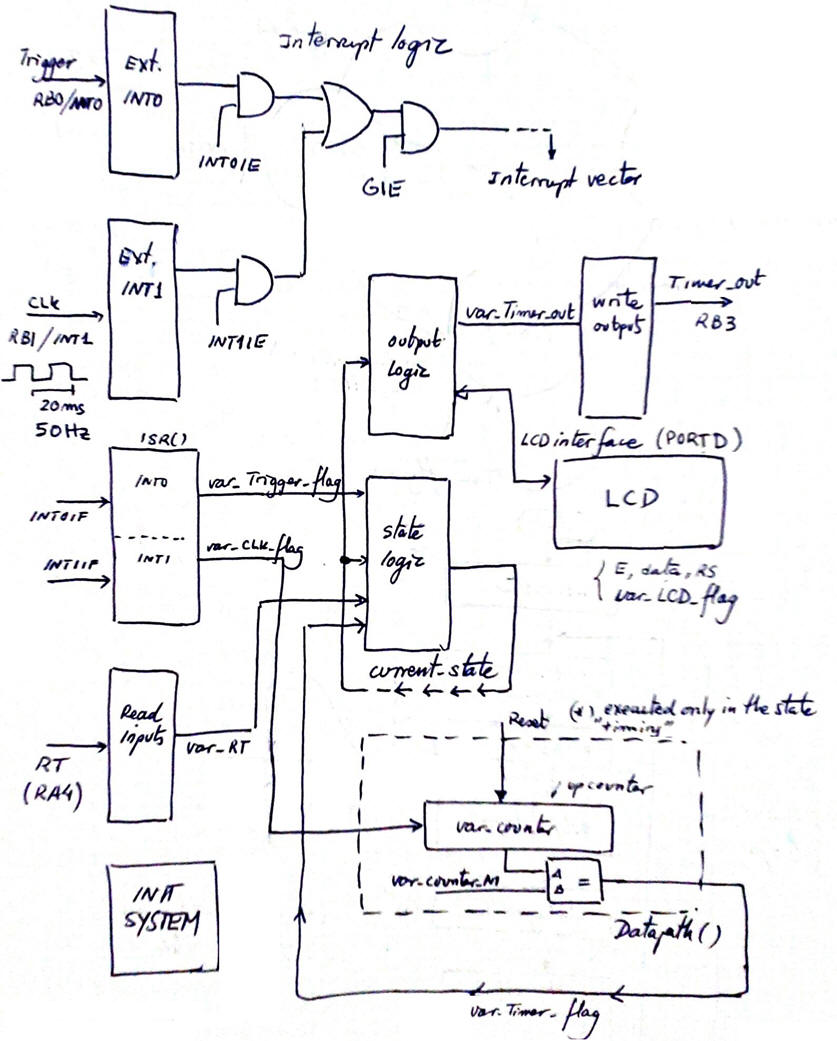 Interrupt logic
Trigger
RB0/INT0
Ext.
INT0
INT0IE
GIE
Interrupt vector
Ext.
INT1
CLK
RB1/INT1
INT1IE
20ms
50Hz
output
logic
var_Timer_out
write
output
Timer_out
RB3
LCD interface (PORTD)
LCD
E, data, RS
var_LCD_flag
ISR()
INT0
INT1
INT0IF
INT1IF
var_Trigger_flag
var_CLK_flag
state
logic
current_state
Read
inputs
RT
(RA4)
var_RT
Reset
(*) executed only in the state
"timing"
upcounter
var_counter
var_counter_M
A
B
=
Datapath()
var_Timer_flag
INIT
SYSTEM